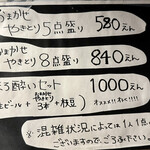 おまかせ
やきとり5点盛り 580えん
おまかせ
やきとり8点盛り 840えん
ろ酔いセット 1000えん
おまかせ
生ビール+やきとり3本+枝豆) オススメ!!
※混雑状況によっては1人1点
ございますので、ご了承ください。